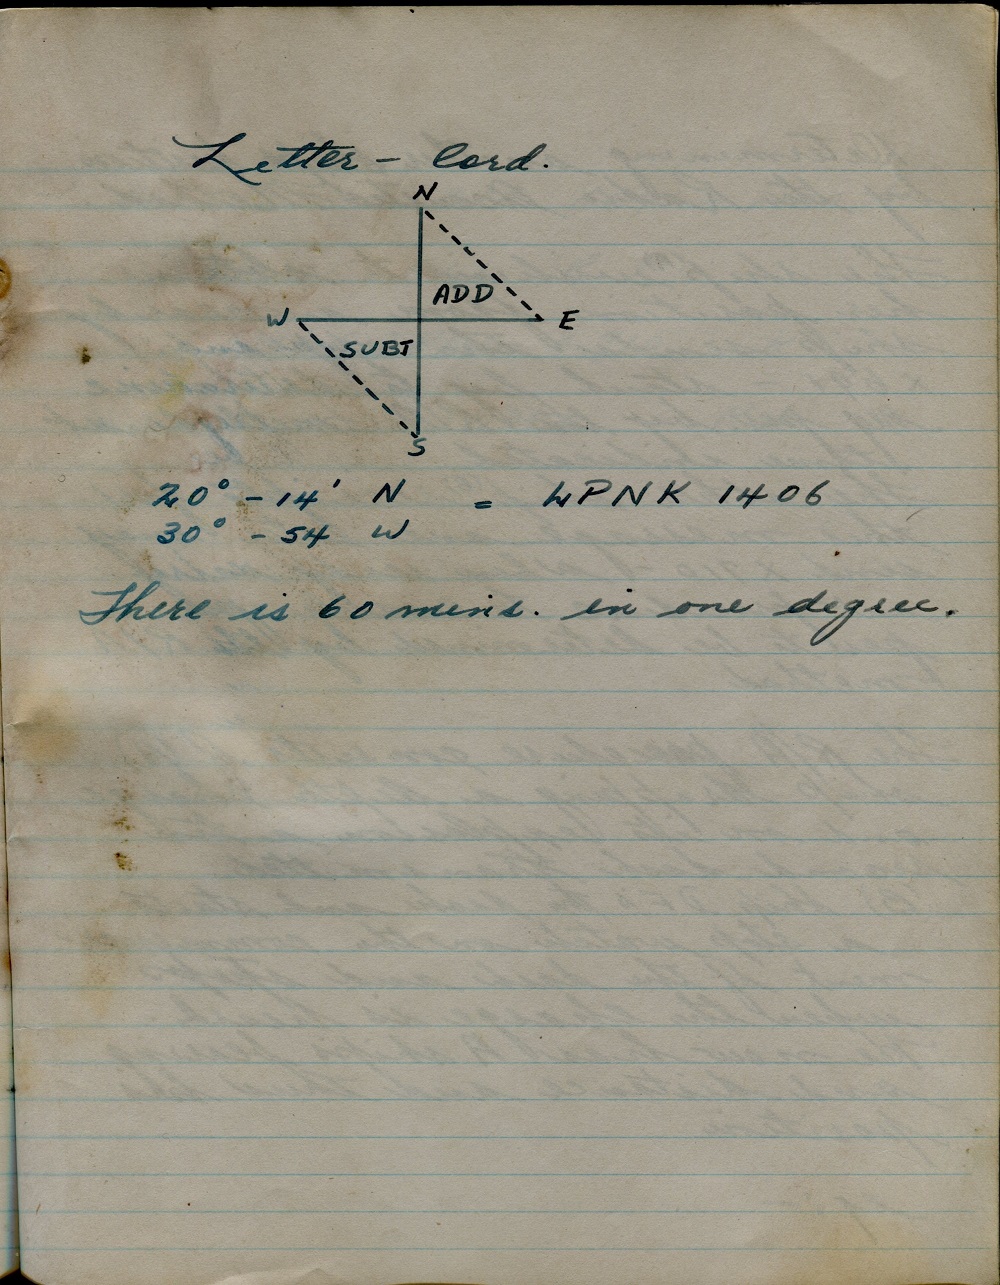 Letter - Cord.
N
ADD
W E
SUBT
S
20° - 14' N = LPNK 1406
30° - 54 W
There is 60 mins. in one degree.